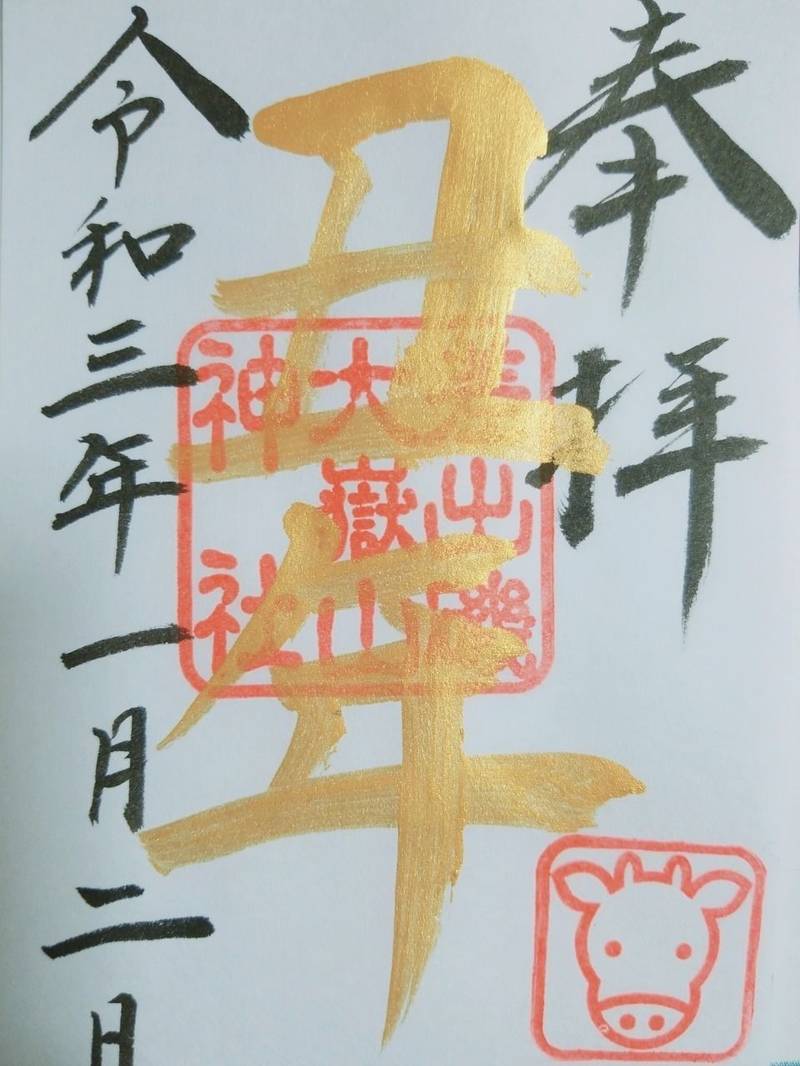 奉拝
丑年
大嶽山
神社
令和三年一月二日